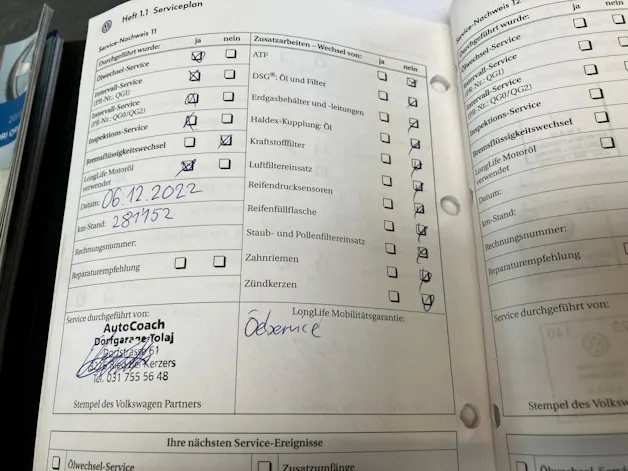 Heft 1.1 Serviceplan
Service-Nachweis 11
Durchgeführt wurde: ja nein
Ölwechsel-Service
Intervall-Service
(PR-Nr.: QG1)
Intervall-Service
(PR-Nr.: QG0/QG2)
Inspektions-Service
Bremsflüssigkeitswechsel
LongLife Motoröl
verwendet
Datum: 06.12.2022
km-Stand: 281452
Rechnungsnummer:
Reparaturempfehlung
Service durchgeführt von:
AutoCoach
Dorfgarage Tolaj
Dorfstrasse 61
Kerzers
Tel. 031 755 56 48
Stempel des Volkswagen Partners
Zusatzarbeiten – Wechsel von: ja nein
ATF
DSG®: Öl und Filter
Erdgasbehälter und -leitungen
Haldex-Kupplung: Öl
Kraftstofffilter
Luftfiltereinsatz
Reifendrucksensoren
Reifenfüllflasche
Staub- und Pollenfiltereinsatz
Zahnriemen
Zündkerzen
LongLife Mobilitätsgarantie:
Ölservice
Ihre nächsten Service-Ereignisse
Ölwechsel-Service
Zusatzumfänge
Service-Nachweis 12
Durchgeführt wurde: ja
Ölwechsel-Service
Intervall-Service
(PR-Nr.: QG1)
Intervall-Service
(PR-Nr.: QG0/QG2)
Inspektions-Service
Bremsflüssigkeitswechsel
LongLife Motoröl
verwendet
Datum:
km-Stand:
Rechnungsnummer:
Reparaturempfehlung
Service durchgeführt von:
Stempel des Volksw
Ölwechsel-Serv